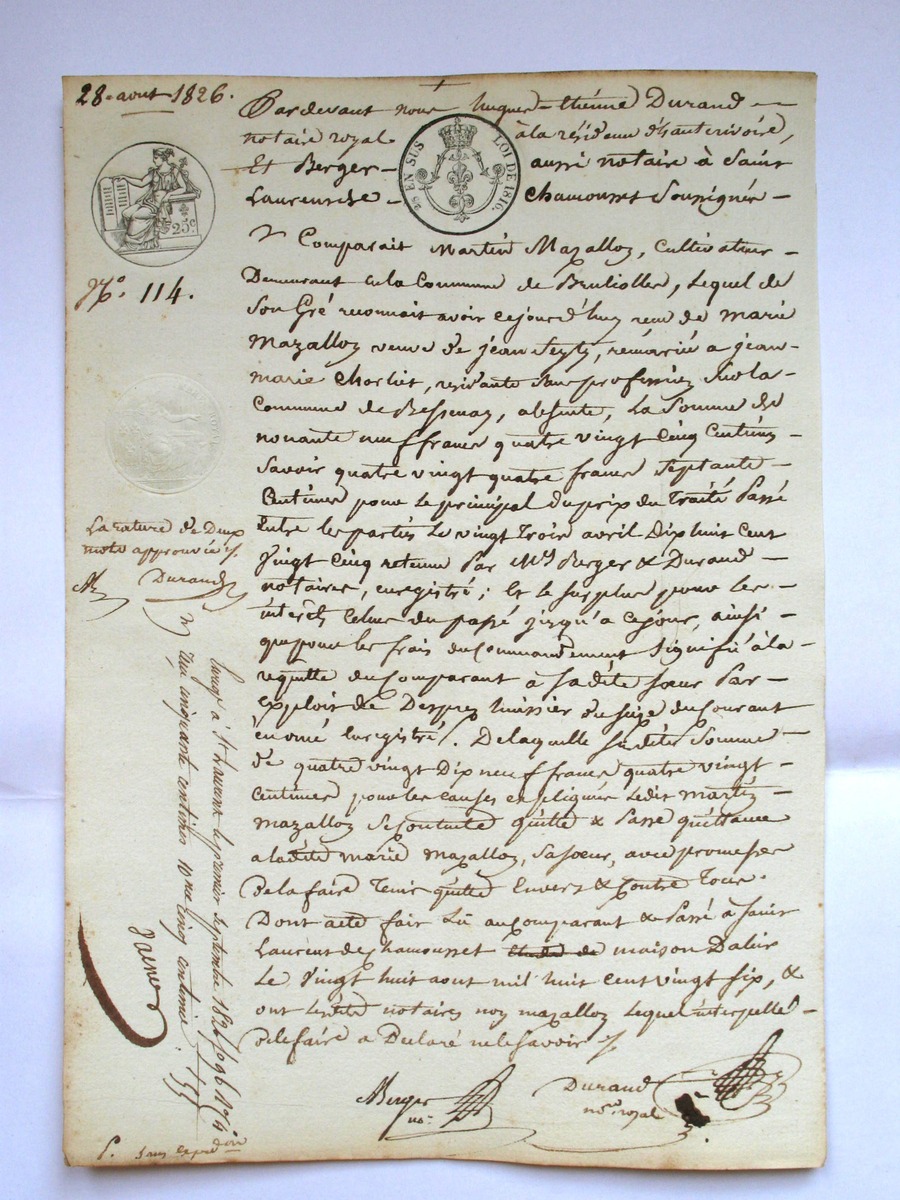 28 aout 1826.
Pardevant nous hugues-thiénne Durand
notaire royal à la résidence d'hauterivoire,
Et Berger aussi notaire à Saint
Laurent de Chamousset Soussignés
25 EN SUS LOI DE 1816.
25c
No. 114.
Comparait Martin Mazalloz, Cultivateur
Demeurant en la Commune de Brulioller, Lequel de
Son Gré reconnait avoir cejourd'huy reçu de marie
Mazalloz veuve de jean Seyty, remariée a jean
marie Chorlet, residante Sans profession Sur la
Commune de Bessenay, absente, La Somme de
nonante neuf francs quatre vingt Cinq Centimes
Savoir quatre vingt quatre francs Septante
Centimes pour Le principal du prix du Traité Passé
Entre les parties Le vingt Trois avril Dix huit Cent
Vingt Cinq retenu Par Mes Berger & Durand
notaires, enregistré; Et le Surplus pour les
interets Celue du passé jusqu'a cejour, ainsi
que pour les frais du Commandement Signifié à la
requette du Comparant à Sadite Soeur Par
Exploit de Desprez huissier du Seize du Courant
en omé Enregistré. De laquelle Susdite Somme
de quatre vingt Dix neuf francs quatre vingt
Centimes pour les causes expliquées Ledit Martin
Mazalloz Se Contente quitte & Passe quittance
a ladite marie Mazalloz, Sa Soeur, avec promesse
De la faire Tenir quitte Envers & Contre Tous.
Dont acte fait Lu au Comparant & Passé à Saint
Laurent de Chamousset maison Dalin
Le Vingt huit aout mil huit Cent vingt Six, &
ont lesdits notaires non mazalloz Lequel interpellé
De le faire a Déclaré ne le Savoir
Berger
no.
Durand
nore royal
La rature de Deux
mots approuvée
Durand
Enregé à St Laurent le premier Septembre 1826
un cinquante centimes dixme cinq centimes
Sans expedon